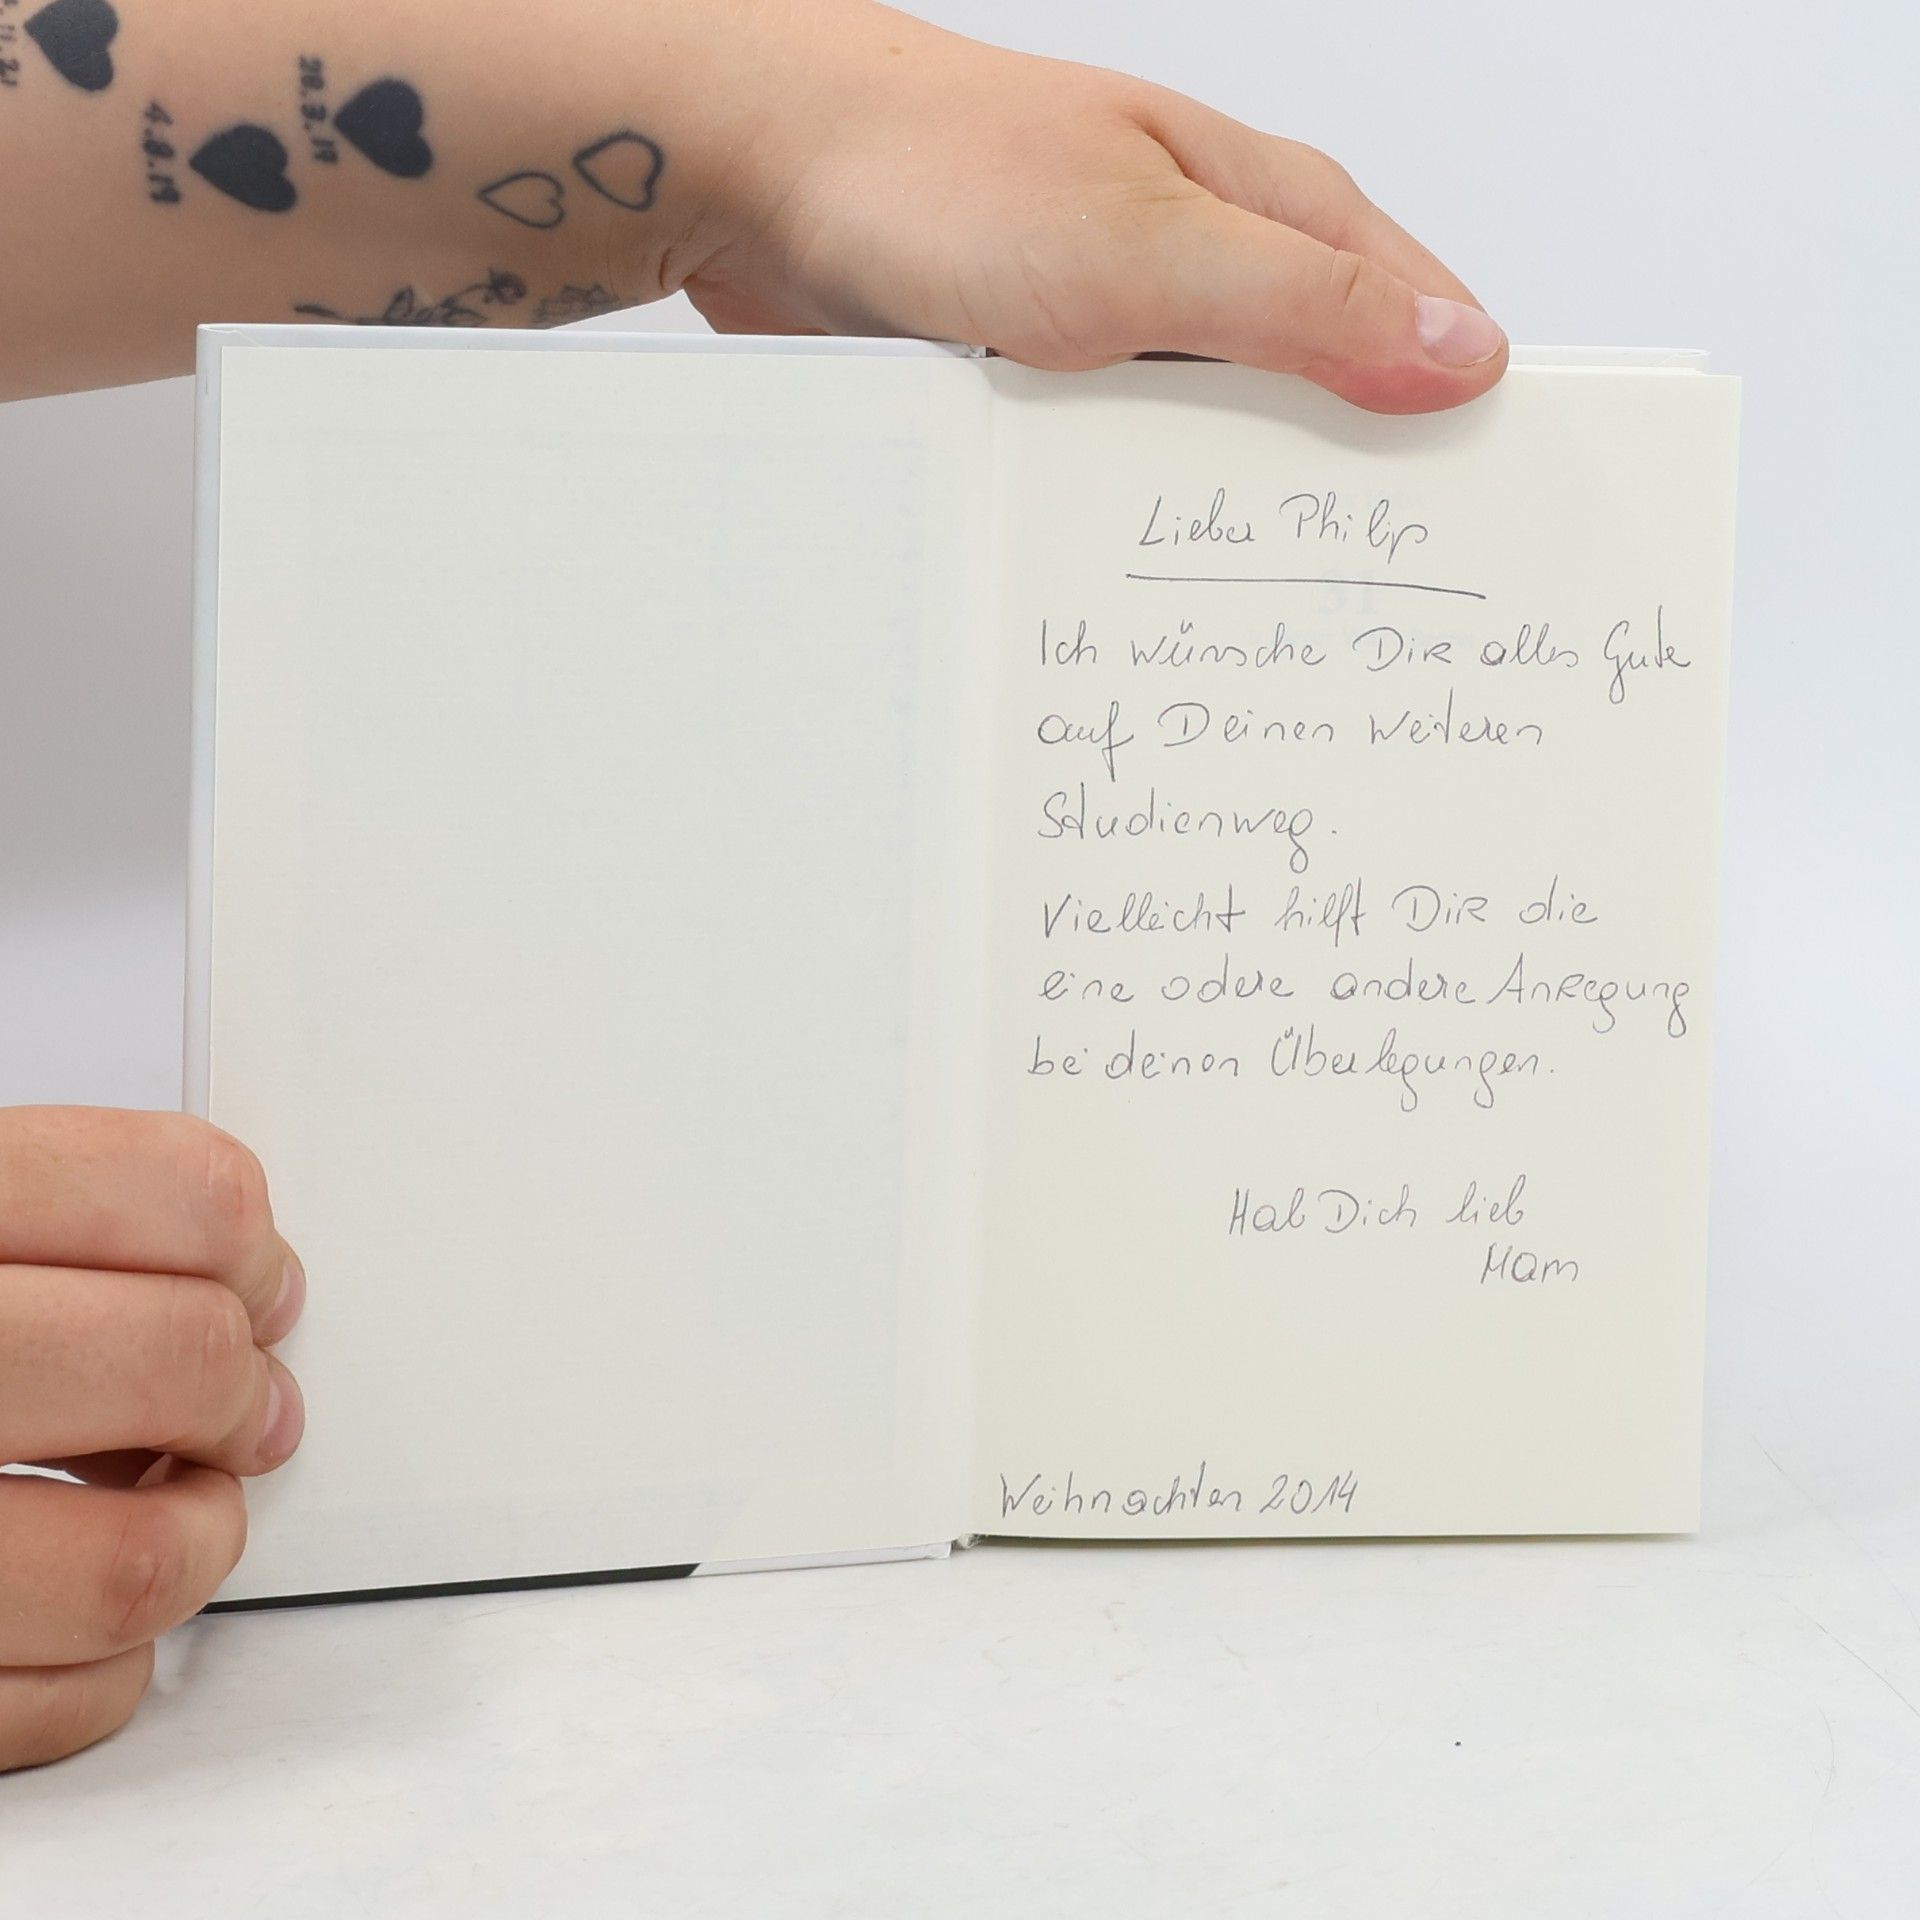 11.21
4.8.19
28.3.19
Lieber Philip
Ich wünsche Dir alles Gute
auf Deinen weiteren
Studienweg.
Vielleicht hilft Dir die
eine odere andere Anregung
bei deinen Überlegungen.
Hab Dich lieb
Mam
Weihnachten 2014